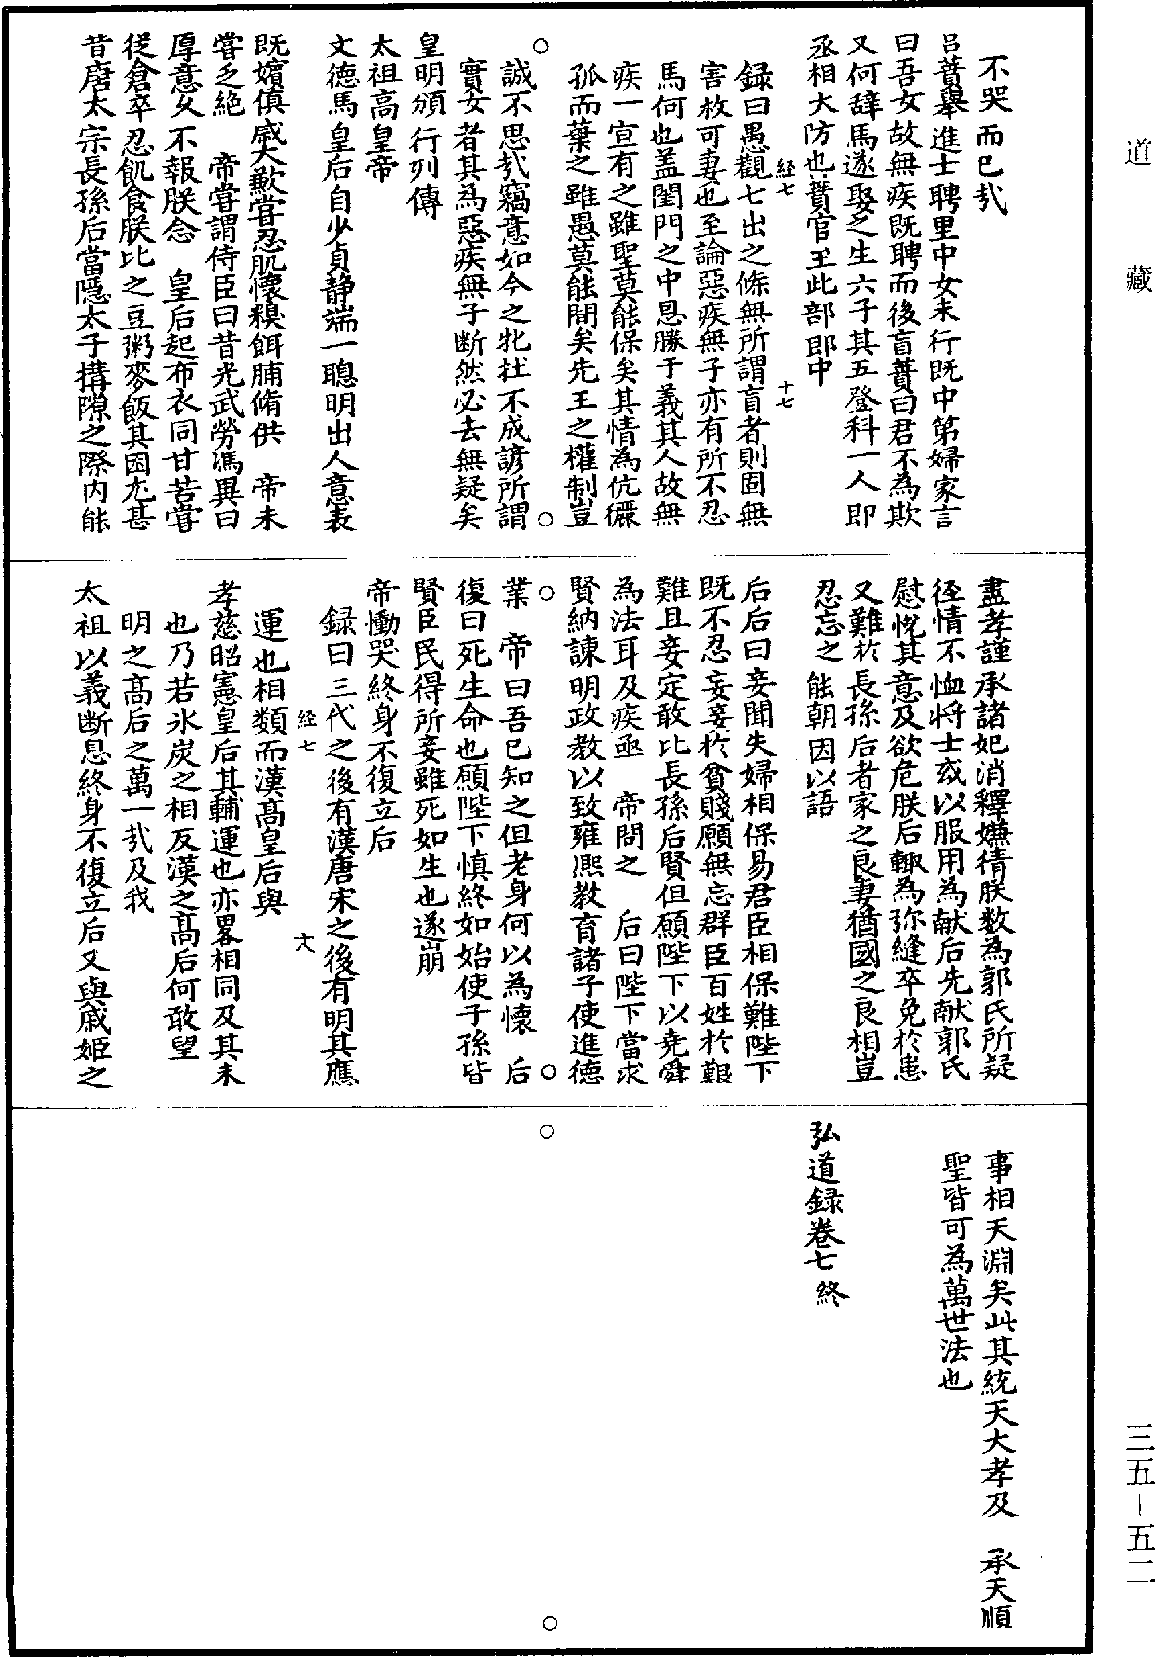 不哭而已哉
呂蕡舉進士聘里中女未行既中第婦家言
曰吾女故無疾既聘而後盲蕡曰君不為欺
又何辞焉遂娶之生六子其五登科一人即
丞相大防也蕡官至比部郎中
録曰愚觀七出之條無所謂盲者則固無
害故可妻也至論惡疾無子亦有所不忍
焉何也盖閨門之中恩勝于義其人故無
疾一宣有之雖聖莫能保矣其情為伉儷
孤而葉之雖愚莫能間矣先王之權制豈
誠不思哉竊意如今之牝牡不成諺所謂
實女者其為惡疾無子断然必去無疑矣
皇明頒行列傳
太祖高皇帝
文德馬皇后自少貞静端一聰明出人意表
既嬪值歲大歉嘗忍肌懷糗餌脯脩供　帝未
嘗乏絶　帝嘗謂侍臣曰昔光武勞馮異曰
厚意久不報朕念　皇后起布衣同甘苦嘗
從倉卒忍飢食朕比之豆粥麥飯其困尤甚
昔唐太宗長孫后當隱太子搆隙之際内能
盡孝謹承諸妃消釋嫌猜朕数為郭氏所疑
徑情不恤将士或以服用為献后先献郭氏
慰悦其意及欲危朕后輙為弥縫卒免於患
又難於長孫后者家之良妻猶國之良相豈
忍忘之　能朝因以語
后后曰妾聞夫婦相保易君臣相保難陛下
既不忍妄妾於貧賤願無忘群臣百姓於艱
難且妾定敢比長孫后賢但願陛下以堯舜
為法耳及疾亟　帝問之　后曰陛下當求
賢納諫明政教以致雍熙教育諸子使進德
業　帝曰吾已知之但老身何以為懷　后
復曰死生命也願陛下慎終如始使子孫皆
賢臣民得所妾雖死如生也遂崩
帝慟哭終身不復立后
録曰三代之後有漢唐宋之後有明其應
運也相類而漢髙皇后與
孝慈昭憲皇后其輔運也亦畧相同及其末
也乃若氷炭之相反漢之髙后何敢望
明之髙后之萬一哉及我
太祖以義断恩終身不復立后又與戚姫之
事相天淵矣此其統天大孝及　承天順
聖皆可為萬世法也
弘道録卷七終
経七　十七
経七　十八
道藏
三五－五二